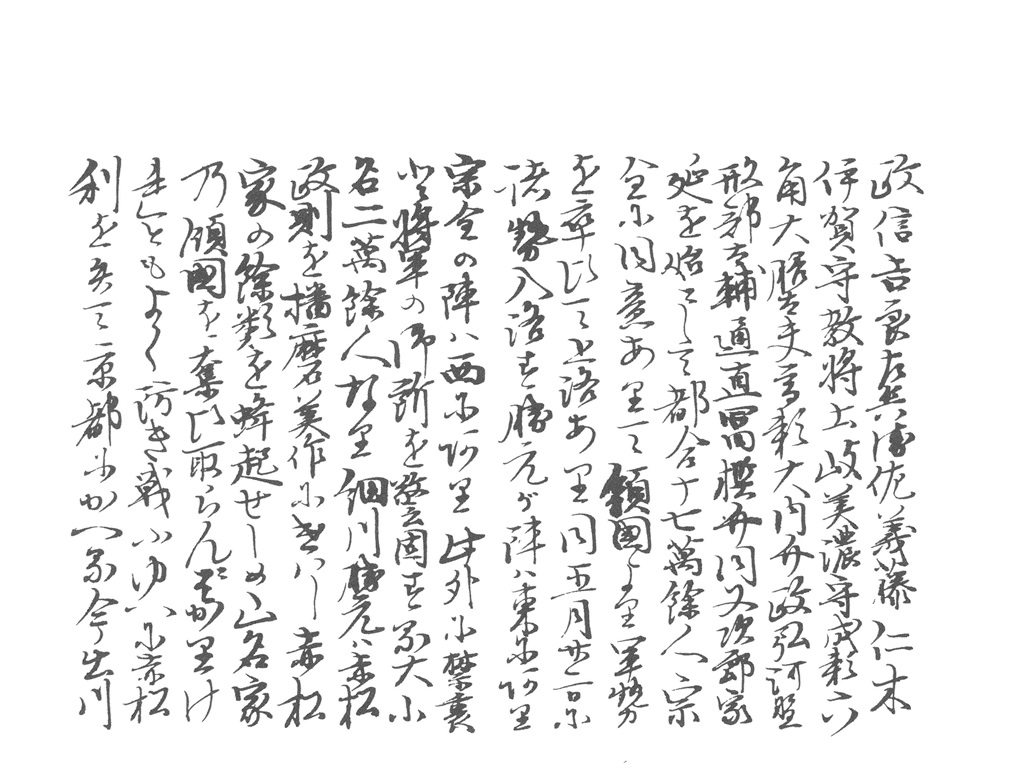 政信吉良左兵衛佐義藤仁木
伊賀守教将土岐美濃守成頼六
角大膳大夫高頼大内介政弘河野
刑部大輔通直冨樫介同又次郎家
延を始として都合十七萬餘人宗
全に同意ありて領國より軍勢
を率ひて上洛あり同五月廿一日に
諸勢入洛す勝元が陣は東にあり
宗全の陣は西にあり此外に禁裏
と将軍の御所を警固する大小
名二萬餘人なり細川勝元は赤松
政則を播磨美作につかはし赤松
家の餘類を蜂起せしめ山名家
の領國を奪ひ取らんとはかりけ
れともよく防き戦ふゆへに赤松
利を失て京都にかへる今出川